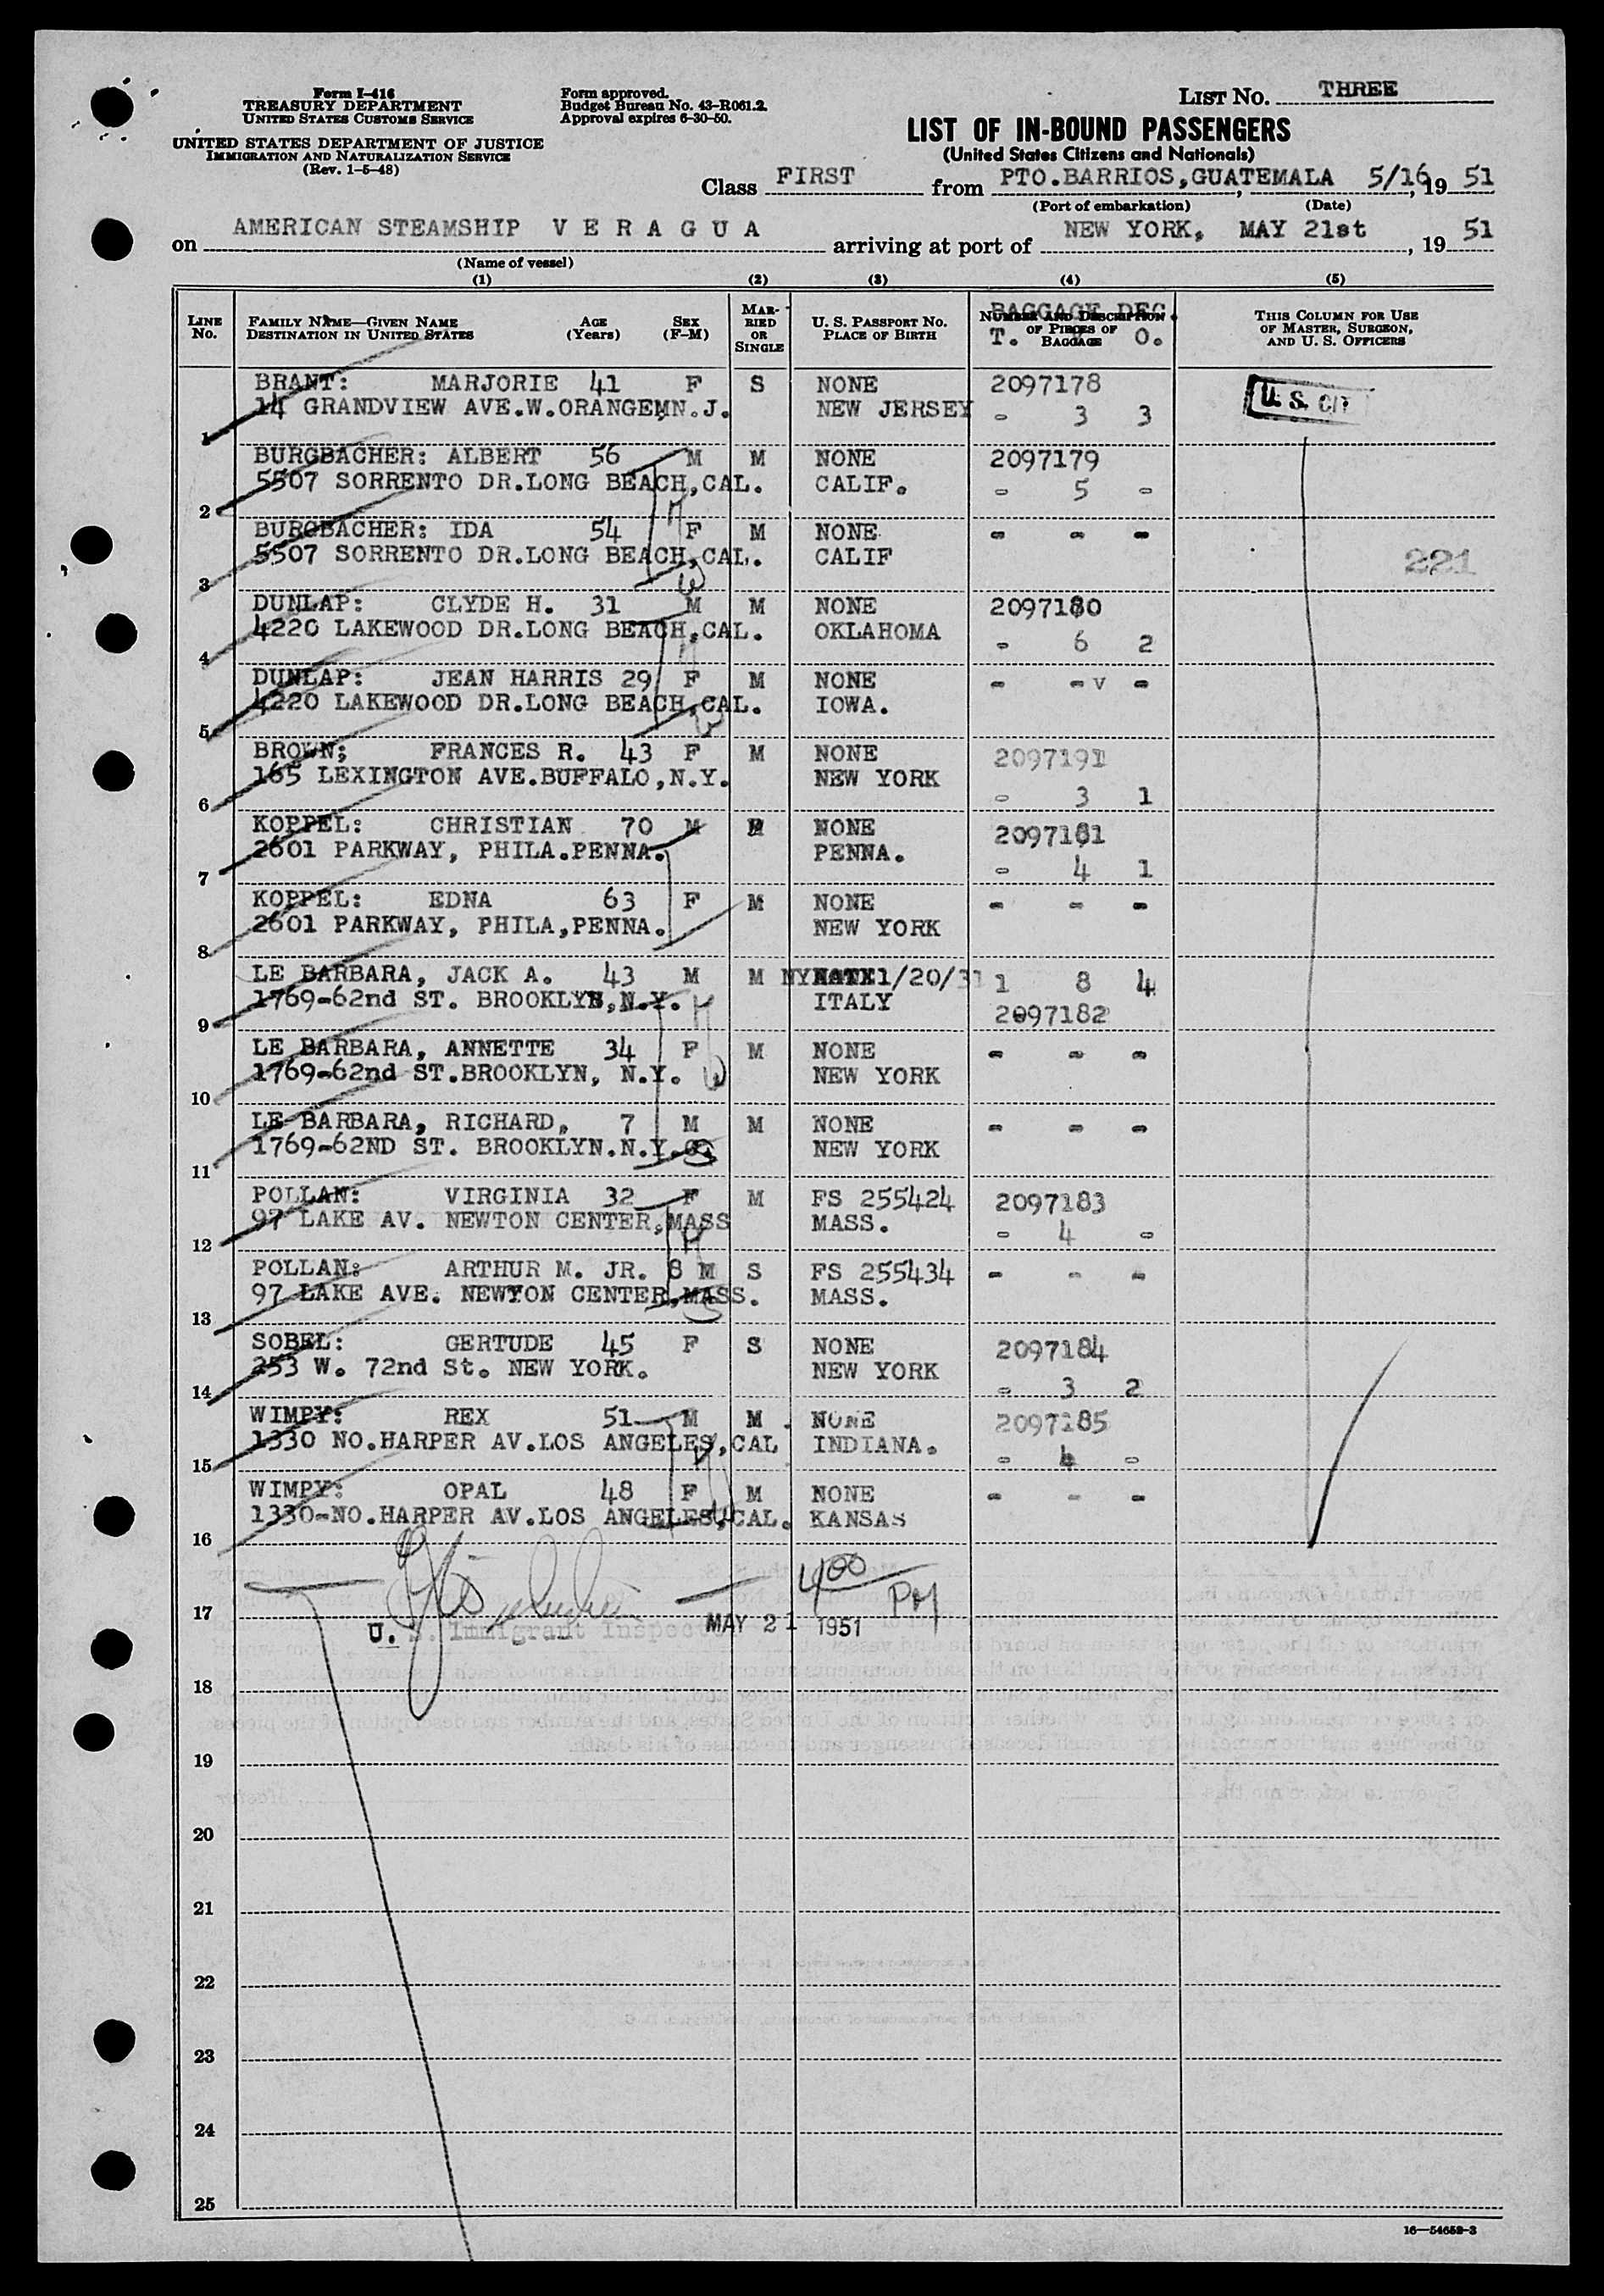 Form I-416
TREASURY DEPARTMENT
UNITED STATES CUSTOMS SERVICE
UNITED STATES DEPARTMENT OF JUSTICE
IMMIGRATION AND NATURALIZATION SERVICE
(Rev. 1-5-48)
Form approved.
Budget Bureau No. 43-R061.2.
Approval expires 6-30-50.
LIST NO. THREE
LIST OF IN-BOUND PASSENGERS
(United States Citizens and Nationals)
Class FIRST from PTO.BARRIOS,GUATEMALA, 5/16, 19 51
(Port of embarkation) (Date)
on AMERICAN STEAMSHIP V E R A G U A arriving at port of NEW YORK, MAY 21st, 19 51
(Name of vessel)
(1) (2) (3) (4) (5)
LINE NO. FAMILY NAME—GIVEN NAME DESTINATION IN UNITED STATES AGE (Years) SEX (F-M) MARRIED OR SINGLE U. S. PASSPORT NO. PLACE OF BIRTH NUMBER AND DESCRIPTION OF PIECES OF BAGGAGE THIS COLUMN FOR USE OF MASTER, SURGEON, AND U. S. OFFICERS
BAGGAGE DEC.
T. O.
BRANT: MARJORIE 41 F S NONE 2097178 U. S. CIT
1 14 GRANDVIEW AVE.W.ORANGE,N.J. NEW JERSEY - 3 3
BURGBACHER: ALBERT 56 M M NONE 2097179
2 5507 SORRENTO DR.LONG BEACH,CAL. CALIF. - 5 -
BURGBACHER: IDA 54 F M NONE - - -
3 5507 SORRENTO DR.LONG BEACH,CAL. CALIF 221
DUNLAP: CLYDE H. 31 M M NONE 2097180
4 4220 LAKEWOOD DR.LONG BEACH,CAL. OKLAHOMA - 6 2
DUNLAP: JEAN HARRIS 29 F M NONE - - v -
5 4220 LAKEWOOD DR.LONG BEACH,CAL. IOWA.
BROWN; FRANCES R. 43 F M NONE 2097191
6 165 LEXINGTON AVE.BUFFALO,N.Y. NEW YORK - 3 1
KOPPEL: CHRISTIAN 70 M M NONE 2097181
7 2601 PARKWAY, PHILA.PENNA. PENNA. - 4 1
KOPPEL: EDNA 63 F M NONE - - -
8 2601 PARKWAY, PHILA,PENNA. NEW YORK
LE BARBARA, JACK A. 43 M M 1/20/31 1 8 4
9 1769-62nd ST. BROOKLYN,N.Y. ITALY 2097182
LE BARBARA, ANNETTE 34 F M NONE - - -
10 1769-62nd ST.BROOKLYN, N.Y. NEW YORK
LE BARBARA, RICHARD, 7 M M NONE - - -
11 1769-62ND ST. BROOKLYN.N.Y. NEW YORK
POLLAN: VIRGINIA 32 F M FS 255424 2097183
12 97 LAKE AV. NEWTON CENTER,MASS MASS. - 4 -
POLLAN: ARTHUR M. JR. 8 M S FS 255434 - - -
13 97 LAKE AVE. NEWTON CENTER,MASS. MASS.
SOBEL: GERTUDE 45 F S NONE 2097184
14 253 W. 72nd St. NEW YORK. NEW YORK - 3 2
WIMPY: REX 51 M M NONE 2097185
15 1330 NO.HARPER AV.LOS ANGELES,CAL INDIANA. - 4 -
WIMPY: OPAL 48 F M NONE - - -
16 1330-NO.HARPER AV.LOS ANGELES,CAL. KANSAS
400 PM
17
U. S. Immigrant Inspector MAY 21 1951
18
19
20
21
22
23
24
25
16—54652-3